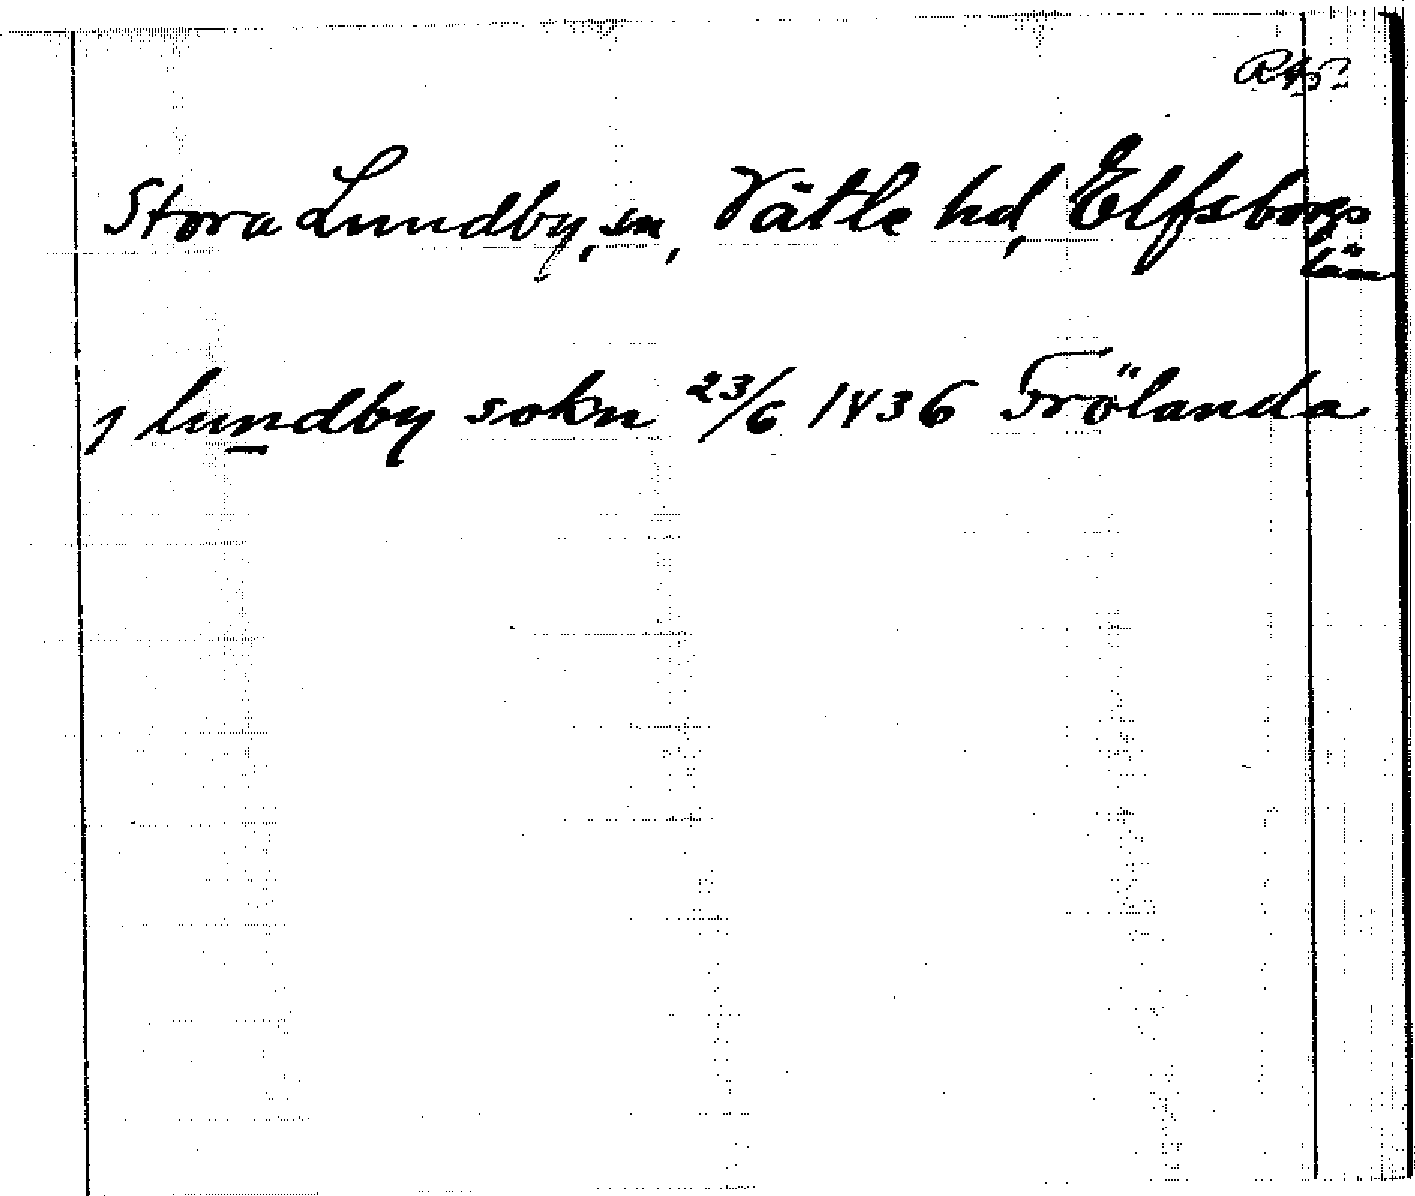 Stora Lundby, sn, Vätle hd, Elfsborgs
län
j lundby sokn 23/6 1436 Frölanda